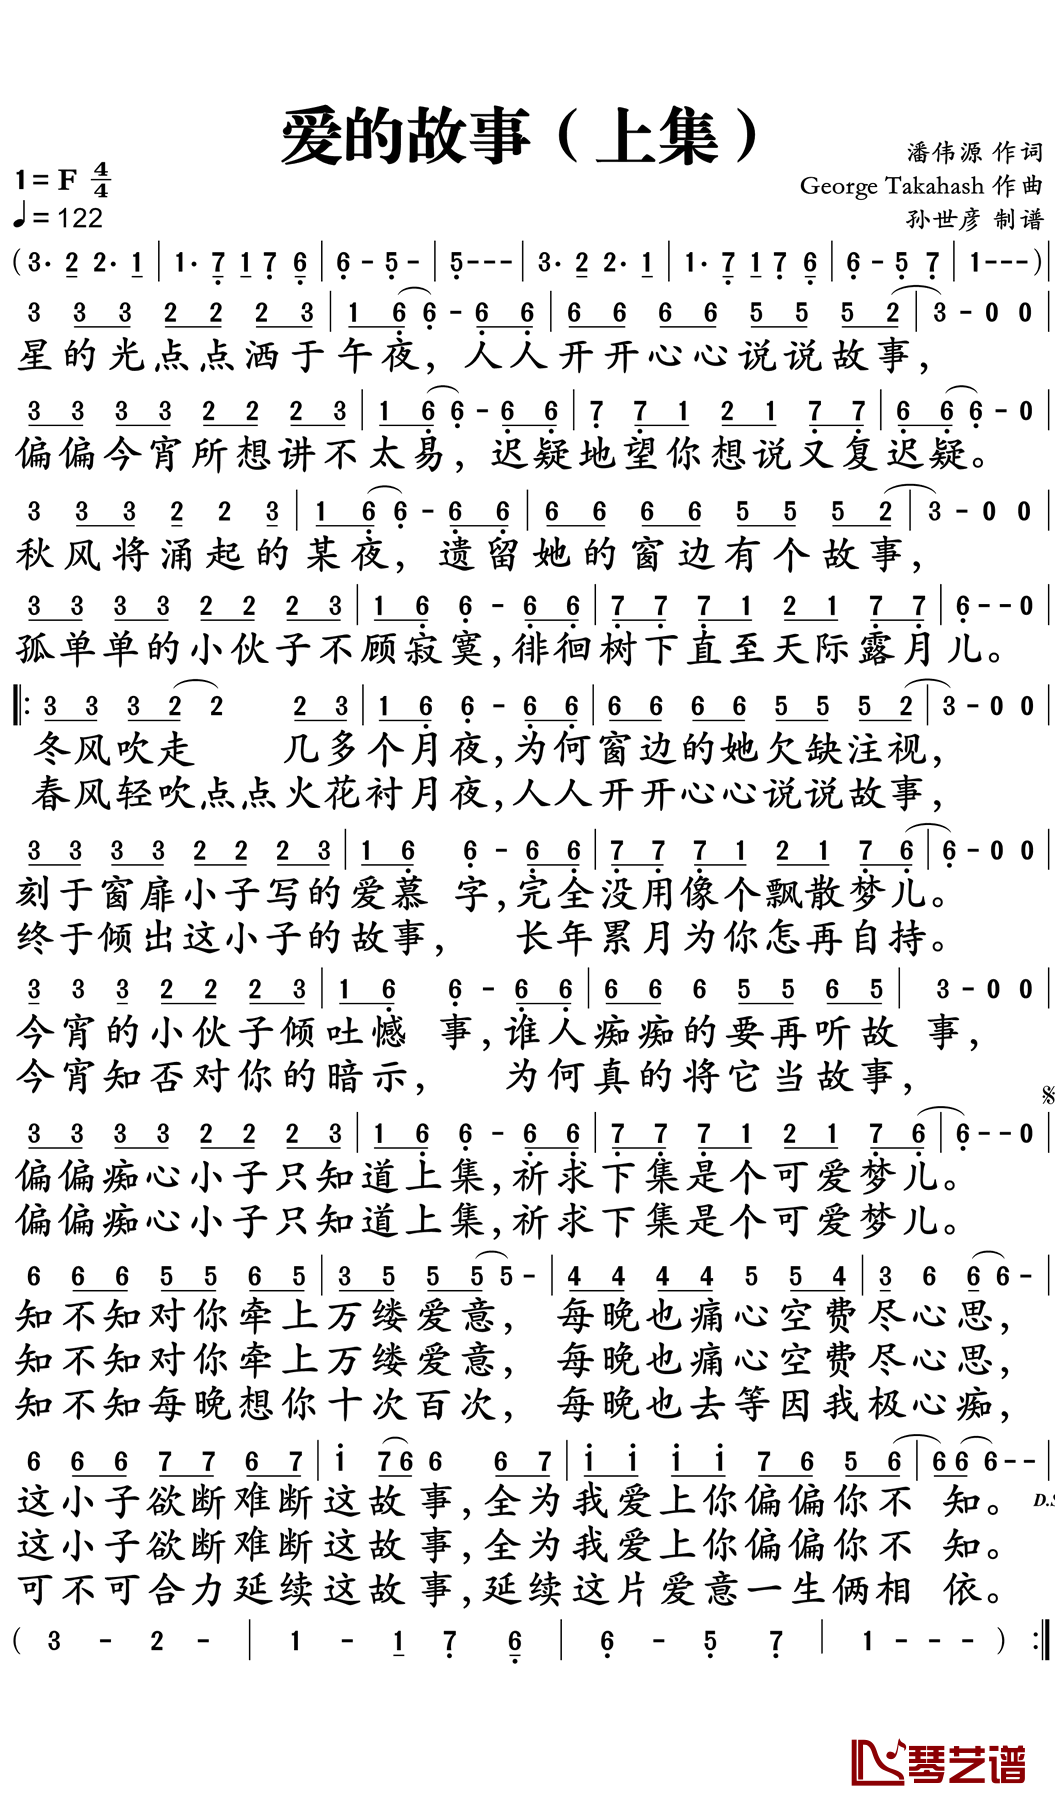 爱的故事（上集）
潘伟源 作词
1=F 4/4
George Takahash 作曲
♩=122
孙世彦 制谱
(3· 2 2· 1 | 1· 7 1 7 6 | 6 - 5 - | 5 - - - | 3· 2 2· 1 | 1· 7 1 7 6 | 6 - 5 7 | 1 - - - )|
3 3 3 2 2 2 3 | 1 6 6 - 6 6 | 6 6 6 6 5 5 5 2 | 3 - 0 0 |
星的光点点洒于午夜，人人开开心心说说故事，
3 3 3 3 2 2 2 3 | 1 6 6 - 6 6 | 7 7 1 2 1 7 7 | 6 6 6 - 0 |
偏偏今宵所想讲不太易，迟疑地望你想说又复迟疑。
3 3 3 2 2 3 | 1 6 6 - 6 6 | 6 6 6 6 5 5 5 2 | 3 - 0 0 |
秋风将涌起的某夜，遗留她的窗边有个故事，
3 3 3 3 2 2 2 3 | 1 6 6 - 6 6 | 7 7 7 1 2 1 7 7 | 6 - - 0 |
孤单单的小伙子不顾寂寞，徘徊树下直至天际露月儿。
|: 3 3 3 2 2 2 3 | 1 6 6 - 6 6 | 6 6 6 6 5 5 5 2 | 3 - 0 0 |
冬风吹走 几多个月夜，为何窗边的她欠缺注视，
春风轻吹点点火花衬月夜，人人开开心心说说故事，
3 3 3 3 2 2 2 3 | 1 6 6 - 6 6 | 7 7 7 1 2 1 7 6 | 6 - 0 0 |
刻于窗扉小子写的爱慕 字，完全没用像个飘散梦儿。
终于倾出这小子的故事， 长年累月为你怎再自持。
3 3 3 2 2 2 3 | 1 6 6 - 6 6 | 6 6 6 5 5 6 5 | 3 - 0 0 |
今宵的小伙子倾吐憾 事，谁人痴痴的要再听故 事，
今宵知否对你的暗示， 为何真的将它当故事，
3 3 3 3 2 2 2 3 | 1 6 6 - 6 6 | 7 7 7 1 2 1 7 6 | 6 - - 0 |
偏偏痴心小子只知道上集，祈求下集是个可爱梦儿。
偏偏痴心小子只知道上集，祈求下集是个可爱梦儿。
6 6 6 5 5 6 5 | 3 5 5 5 5 - | 4 4 4 4 5 5 4 | 3 6 6 6 - |
知不知对你牵上万缕爱意， 每晚也痛心空费尽心思，
知不知对你牵上万缕爱意， 每晚也痛心空费尽心思，
知不知每晚想你十次百次， 每晚也去等因我极心痴，
6 6 6 7 7 6 7 | 1 7 6 6 6 7 | 1 1 1 1 7 6 5 6 | 6 6 6 - - |
这小子欲断难断这故事，全为我爱上你偏偏你不 知。 D.S
这小子欲断难断这故事，全为我爱上你偏偏你不 知。
可不可合力延续这故事，延续这片爱意一生俩相 依。
( 3 - 2 - | 1 - 1 7 6 | 6 - 5 7 | 1 - - - ) :|
琴艺谱